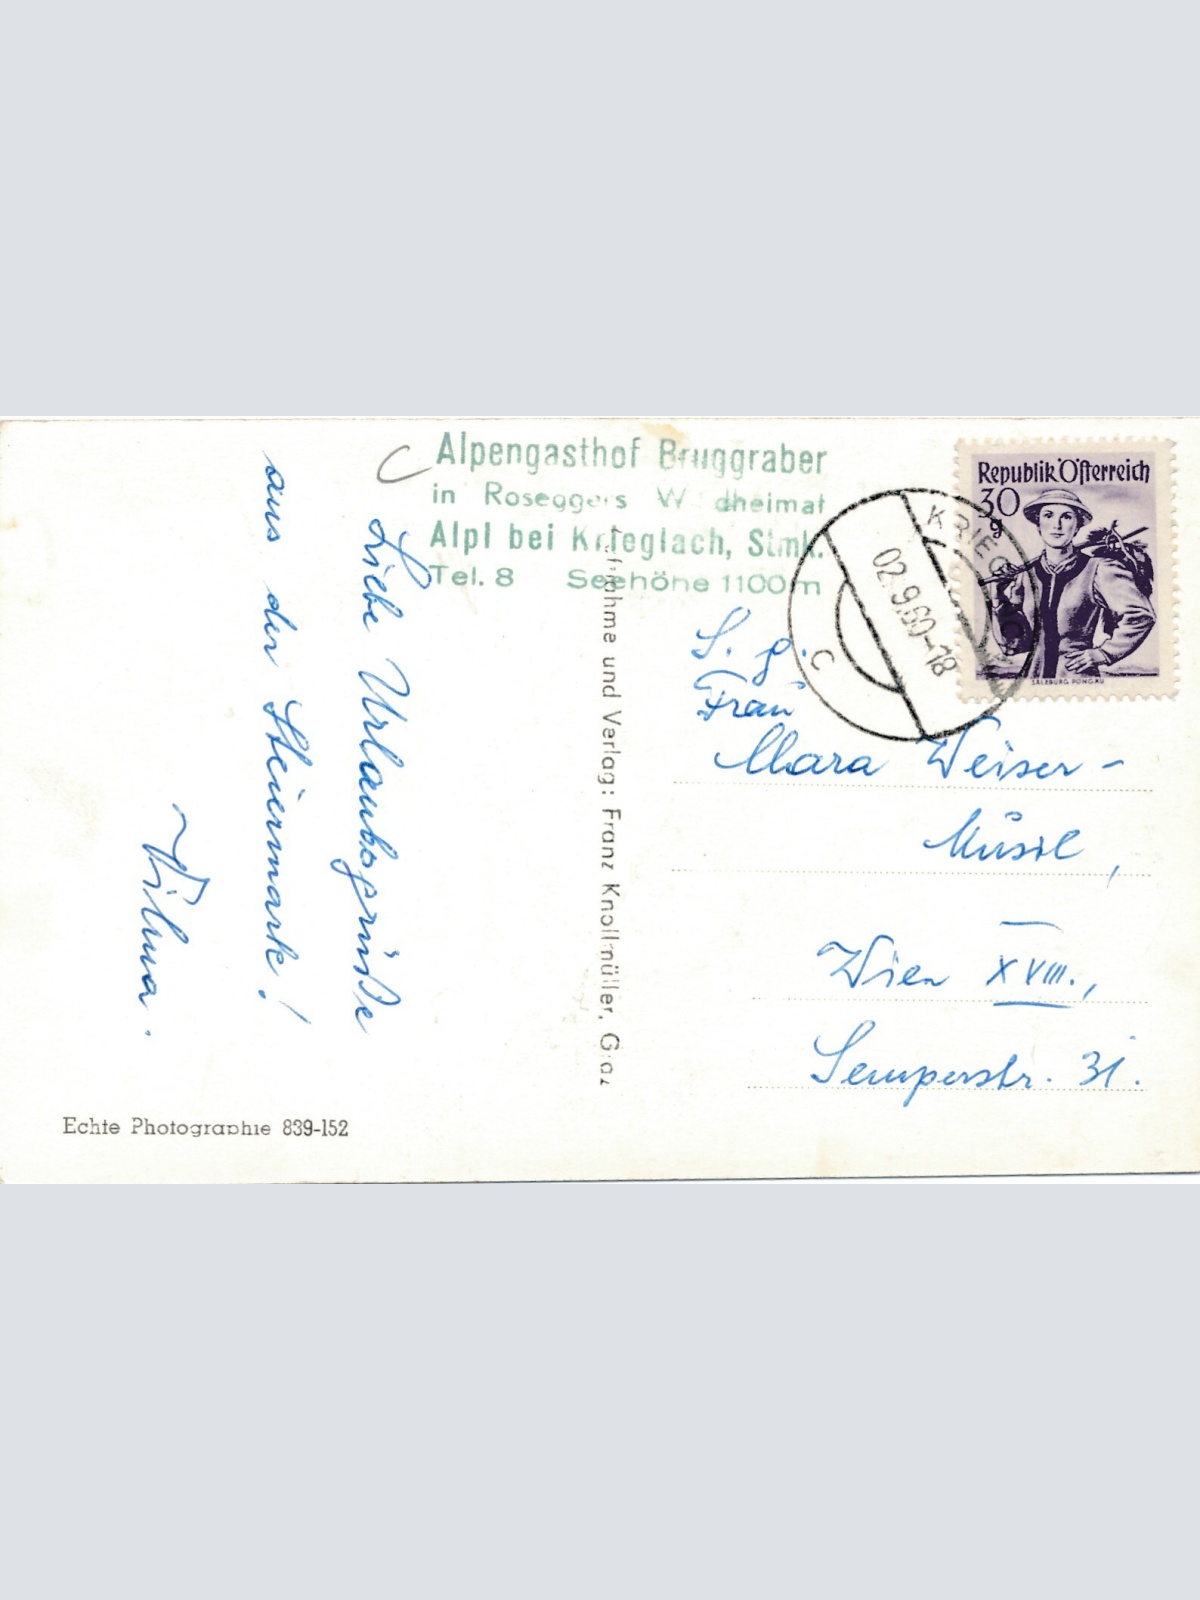 Alpengasthof Bruggraber
in Roseggers W dheimat
Alpl bei Krieglach, Stmk.
Tel. 8 Seehöhe 1100 m
Liebe Urlaubsgrüße
aus der Steiermark!
Vilma.
Republik Österreich
30 g
SALZBURG PONGAU
02.9.60-18
C
S. g.
Frau
Mara Weiser-
Müssl,
Wien XVIII.,
Semperstr. 31.
ufnahme und Verlag: Franz Knollmüller, Graz
Echte Photographie 839-152